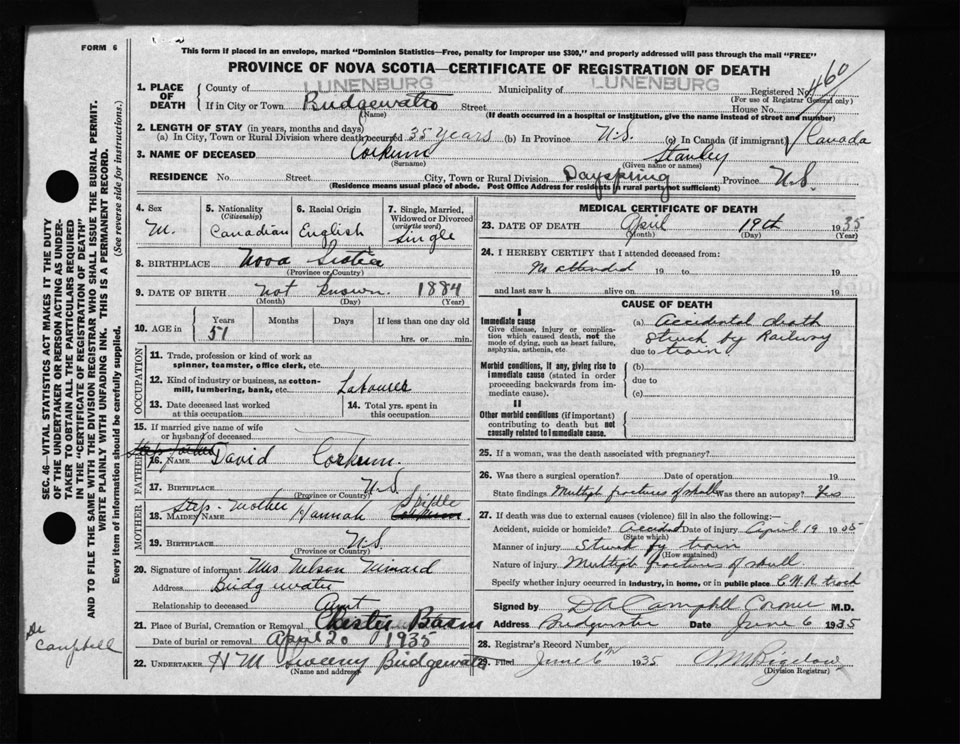 FORM 6
This form if placed in an envelope, marked "Dominion Statistics—Free, penalty for improper use $300," and properly addressed will pass through the mail "FREE"
PROVINCE OF NOVA SCOTIA—CERTIFICATE OF REGISTRATION OF DEATH
1. PLACE OF DEATH County of LUNENBURG Municipality of LUNENBURG Registered No. 460
(For use of Registrar General only)
If in City or Town Bridgewater Street House No.
(Name) (If death occurred in a hospital or institution, give the name instead of street and number)
2. LENGTH OF STAY (in years, months and days)
(a) In City, Town or Rural Division where death occurred 35 years (b) In Province N.S. (c) In Canada (if immigrant) Canada
3. NAME OF DECEASED Corkum Stanley
(Surname) (Given name or names)
RESIDENCE No. Street City, Town or Rural Division Dayspring Province N.S.
(Residence means usual place of abode. Post Office Address for residents in rural parts not sufficient)
4. Sex M.
5. Nationality (Citizenship) Canadian
6. Racial Origin English
7. Single, Married, Widowed or Divorced (write the word) Single
8. BIRTHPLACE Nova Scotia
(Province or Country)
9. DATE OF BIRTH Not known 1884
(Month) (Day) (Year)
10. AGE in Years 51 Months Days If less than one day old
hrs. or min.
OCCUPATION
11. Trade, profession or kind of work as spinner, teamster, office clerk, etc.
12. Kind of industry or business, as cotton-mill, lumbering, bank, etc. Labourer
13. Date deceased last worked at this occupation
14. Total yrs. spent in this occupation
15. If married give name of wife or husband of deceased
FATHER
16. NAME David Corkum.
17. BIRTHPLACE N.S.
(Province or Country)
MOTHER
Step-Mother
18. MAIDEN NAME Hannah
19. BIRTHPLACE N.S.
(Province or Country)
20. Signature of informant Mrs Nelson
Address Bridgewater
Relationship to deceased Aunt
21. Place of Burial, Cremation or Removal Chester Basin
Date of burial or removal April 20 1935
22. UNDERTAKER H M Sweeny Bridgewater
(Name and address)
MEDICAL CERTIFICATE OF DEATH
23. DATE OF DEATH April 19th 1935
(Month) (Day) (Year)
24. I HEREBY CERTIFY that I attended deceased from:
No attended 19 to 19
and last saw h alive on 19
CAUSE OF DEATH
I
Immediate cause
Give disease, injury or complication which caused death, not the mode of dying, such as heart failure, asphyxia, asthenia, etc.
(a) Accidental death
Struck by Railway
due to train
Morbid conditions, if any, giving rise to immediate cause (stated in order proceeding backwards from immediate cause).
(b)
due to
(c)
II
Other morbid conditions (if important) contributing to death but not causally related to immediate cause.
25. If a woman, was the death associated with pregnancy?
26. Was there a surgical operation? Date of operation 19
State findings Multiple fractures of skull Was there an autopsy? Yes
27. If death was due to external causes (violence) fill in also the following:—
Accident, suicide or homicide? Accident Date of injury April 19 1935
(State which)
Manner of injury Struck by train
(How sustained)
Nature of injury Multiple fractures of skull
Specify whether injury occurred in industry, in home, or in public place C.N.R. track
Signed by D A Campbell Coroner M.D.
Address Bridgewater Date June 6 1935
28. Registrar's Record Number
29. Filed June 6th 1935
(Division Registrar)
SEC. 46—VITAL STATISTICS ACT MAKES IT THE DUTY
OF THE UNDERTAKER OR PERSON ACTING AS UNDER-
TAKER TO OBTAIN ALL THE PARTICULARS REQUIRED
IN THE "CERTIFICATE OF REGISTRATION OF DEATH"
AND TO FILE THE SAME WITH THE DIVISION REGISTRAR WHO SHALL ISSUE THE BURIAL PERMIT.
WRITE PLAINLY WITH UNFADING INK. THIS IS A PERMANENT RECORD.
Every item of information should be carefully supplied. (See reverse side for instructions.)
Dr Campbell